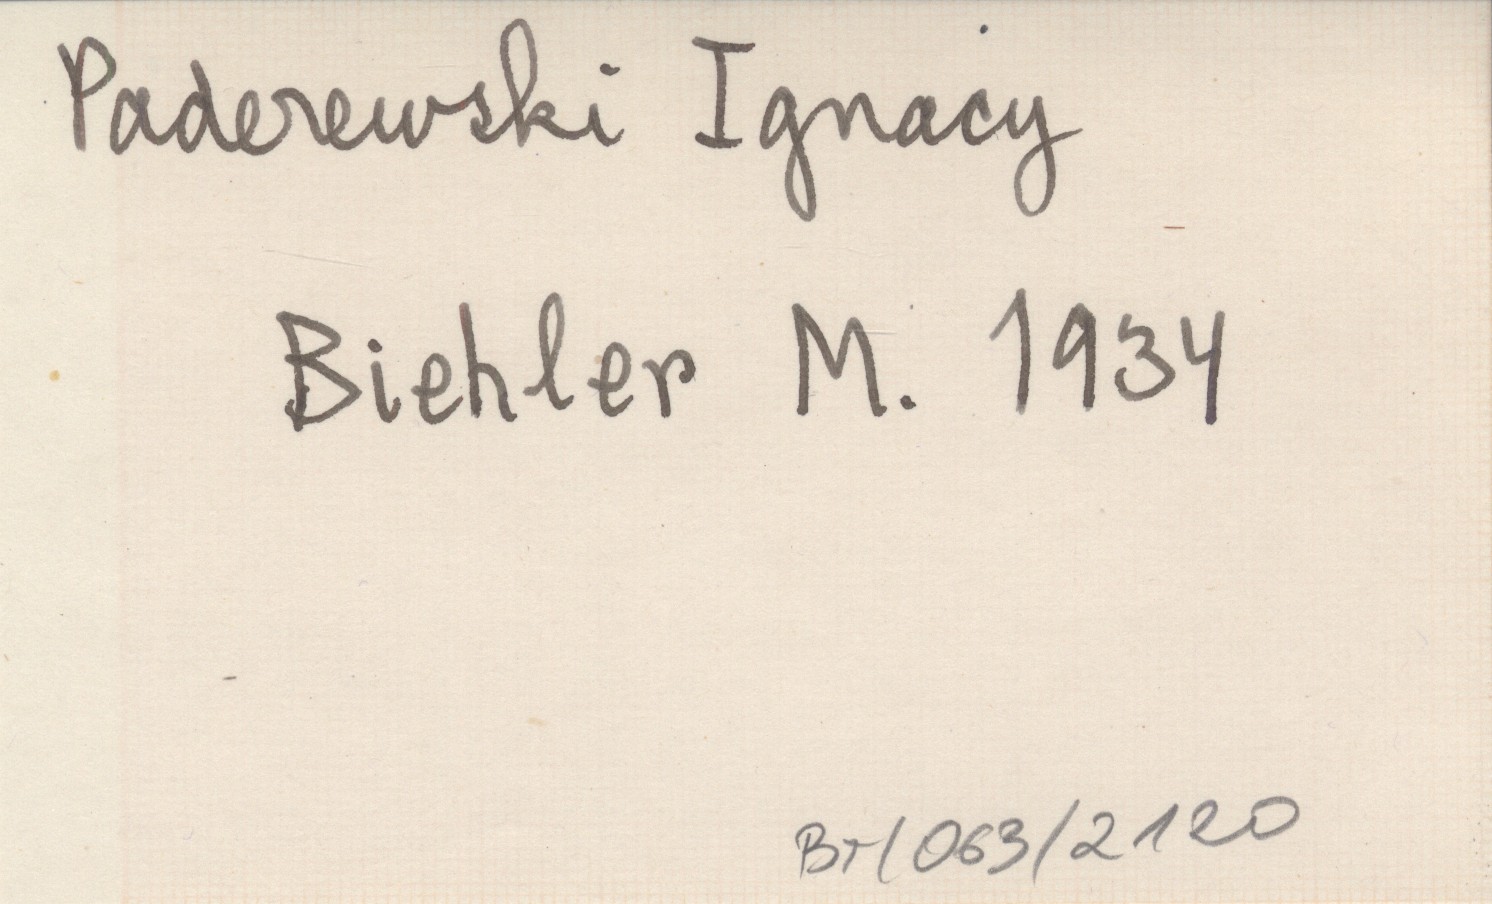 Paderewski Ignacy
Biehler M. 1934
BT/063/2120